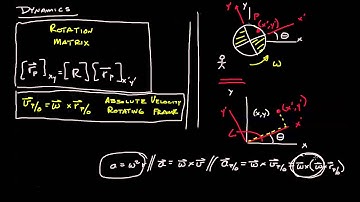 DYNAMICS
ROTATION
MATRIX
[r⃗p]xy = [R][r⃗p]x'y'
v⃗T/O = ω⃗ × r⃗T/O ABSOLUTE VELOCITY
ROTATING FRAME
y' y P (x',y') x'
θ x
ω
y
y' (x,y) (x',y') x'
θ
x
a = ω² // a⃗ = ω⃗ × v⃗ // a⃗T/O = ω⃗ × v⃗T/O = ω⃗ × (ω⃗ × r⃗T/O)